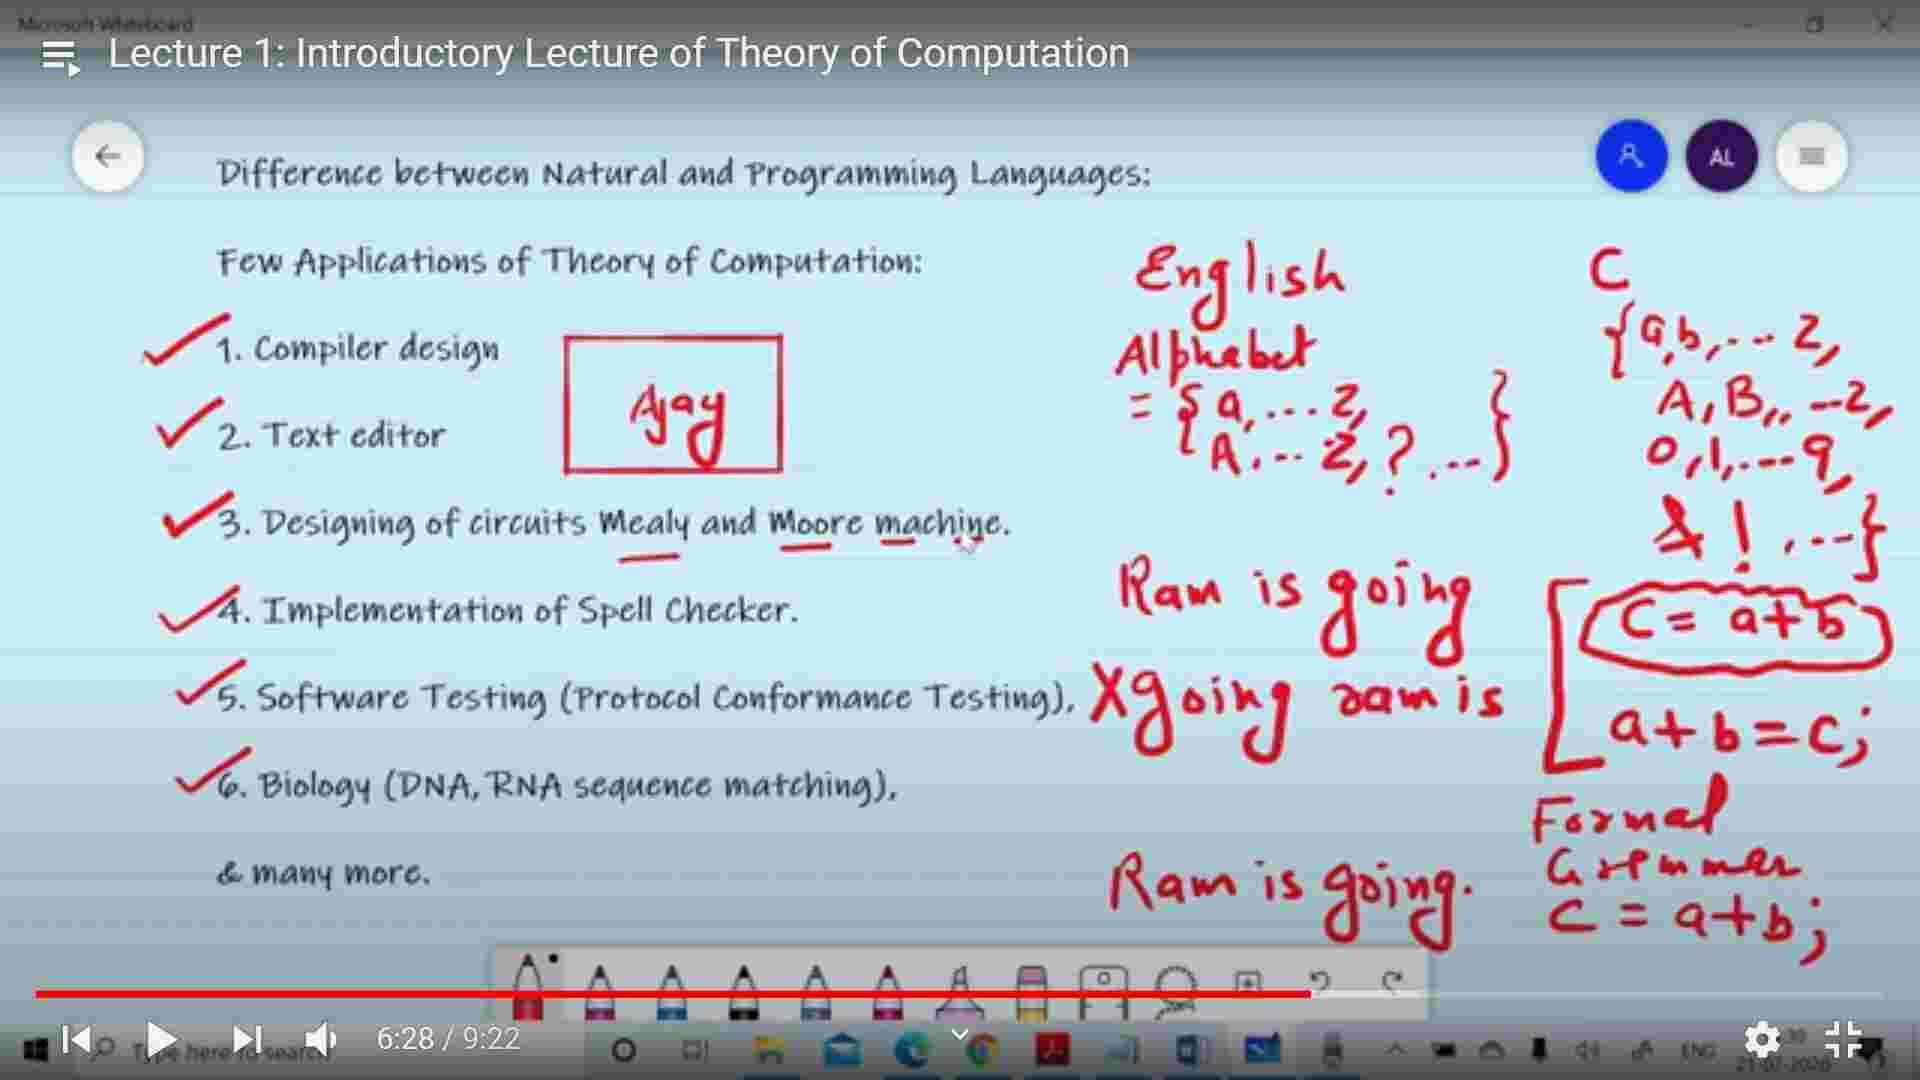 Microsoft Whiteboard
Lecture 1: Introductory Lecture of Theory of Computation
AL
Difference between Natural and Programming Languages:
Few Applications of Theory of Computation:
1. Compiler design
2. Text editor
3. Designing of circuits Mealy and Moore machine.
4. Implementation of Spell Checker.
5. Software Testing (Protocol Conformance Testing),
6. Biology (DNA, RNA sequence matching),
& many more.
Ajay
English
Alphabet
= { a, ... z,
A, .. Z, ? , ... }
Ram is going
X going ram is
Ram is going.
C
{a, b, ... z,
A, B,, -- Z,
0, 1, --- 9,
& ! , --- }
C = a+b
a+b=c;
Formal
Grammer
C = a+b;
6:28 / 9:22
Type here to search
ENG